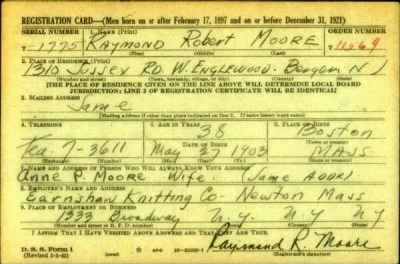 REGISTRATION CARD—(Men born on or after February 17, 1897 and on or before December 31, 1921)
SERIAL NUMBER 1. NAME (Print) ORDER NUMBER
T-1775 RAYMOND Robert MOORE 11269
(First) (Middle) (Last)
2. PLACE OF RESIDENCE (Print)
1310 Sussex RD. W. ENGLEWOOD. Bergen N J
(Number and street) (Town, township, village, or city) (County) (State)
[THE PLACE OF RESIDENCE GIVEN ON THE LINE ABOVE WILL DETERMINE LOCAL BOARD
JURISDICTION; LINE 2 OF REGISTRATION CERTIFICATE WILL BE IDENTICAL]
3. MAILING ADDRESS
Same
[Mailing address if other than place indicated on line 2. If same insert word same]
4. TELEPHONE 5. AGE IN YEARS 6. PLACE OF BIRTH
38 Boston
DATE OF BIRTH (Town or county)
Tea. 7-3611 May 27 1903 MASS.
(Exchange) (Number) (Mo.) (Day) (Yr.) (State or country)
7. NAME AND ADDRESS OF PERSON WHO WILL ALWAYS KNOW YOUR ADDRESS
Anne R. Moore Wife. Same ADDR.
8. EMPLOYER'S NAME AND ADDRESS
Earnshaw Knitting Co - Newton Mass
9. PLACE OF EMPLOYMENT OR BUSINESS
1333 Broadway N.Y. N.Y NY
(Number and street or R. F. D. number) (Town) (County) (State)
I AFFIRM THAT I HAVE VERIFIED ABOVE ANSWERS AND THAT THEY ARE TRUE.
D. S. S. Form 1
(Revised 1-1-42) (over) Raymond R. Moore
(Registrant's signature)